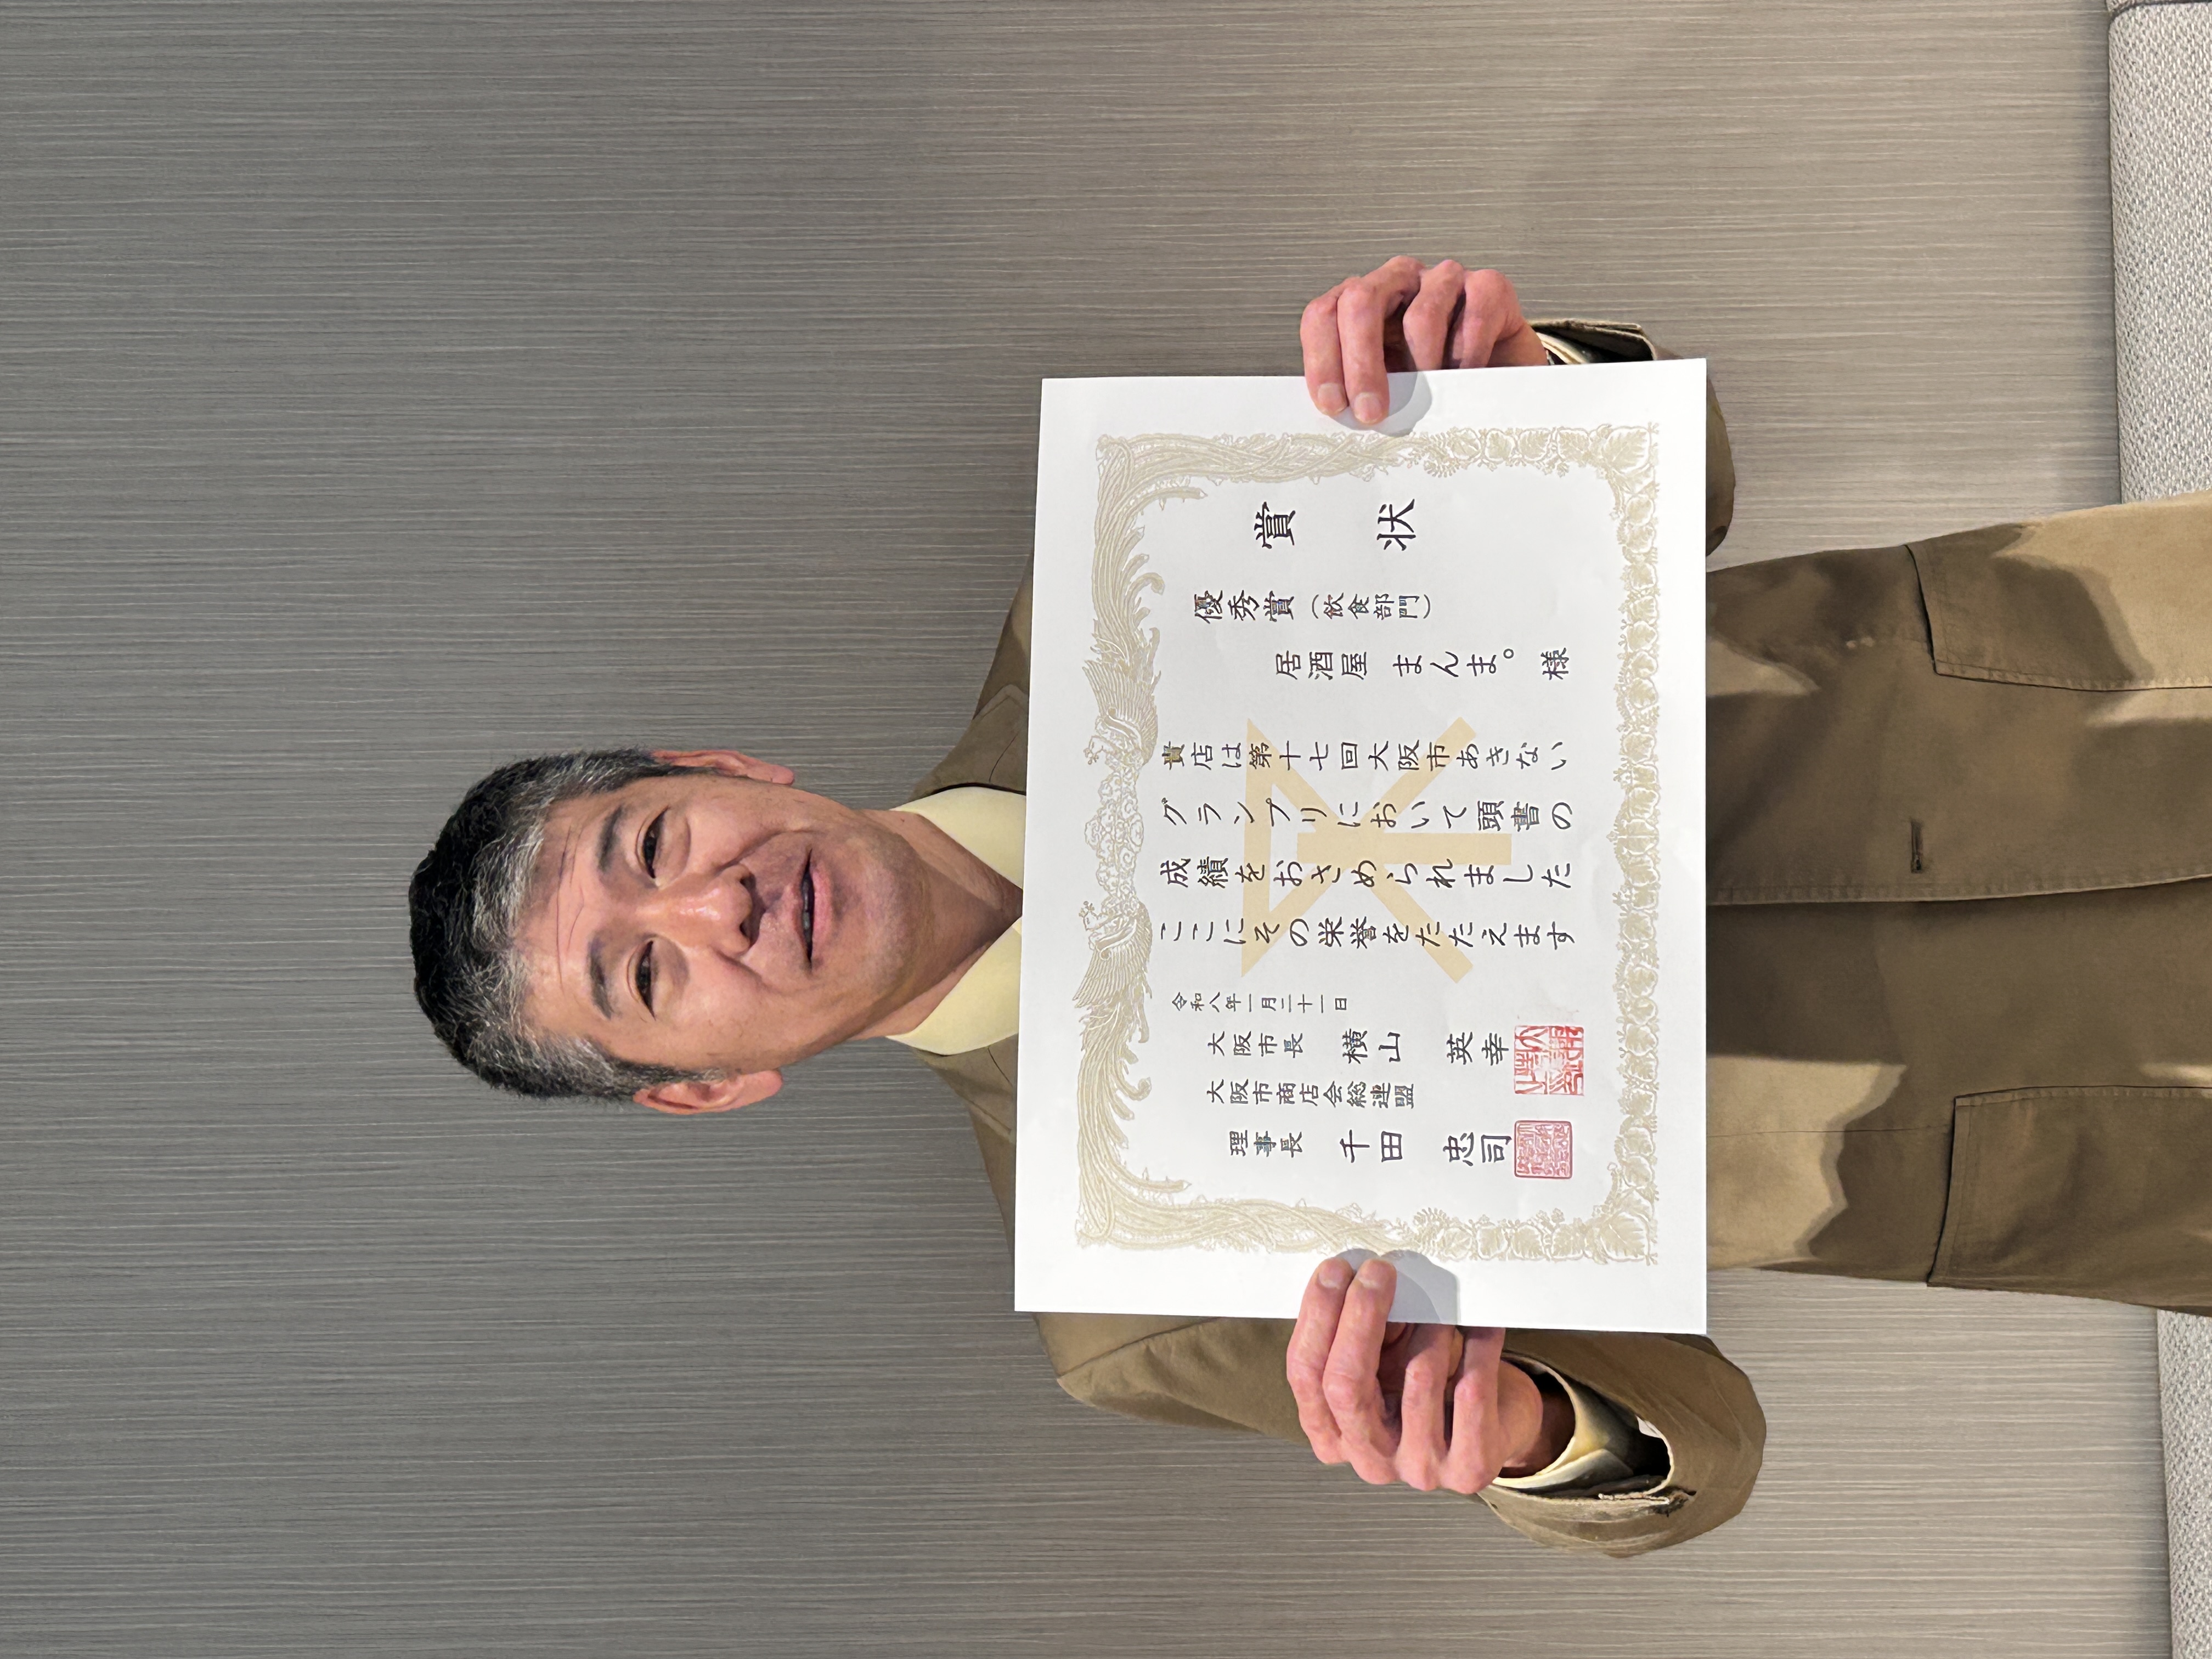 賞状
優秀賞(飲食部門)
居酒屋 まんま。 様
貴店は第十七回大阪市あきない
グランプリにおいて頭書の
成績をおさめられました
ここにその栄誉をたたえます
令和八年一月二十一日
大阪市長 横山 英幸
大阪市商店会総連盟
理事長 千田 忠司